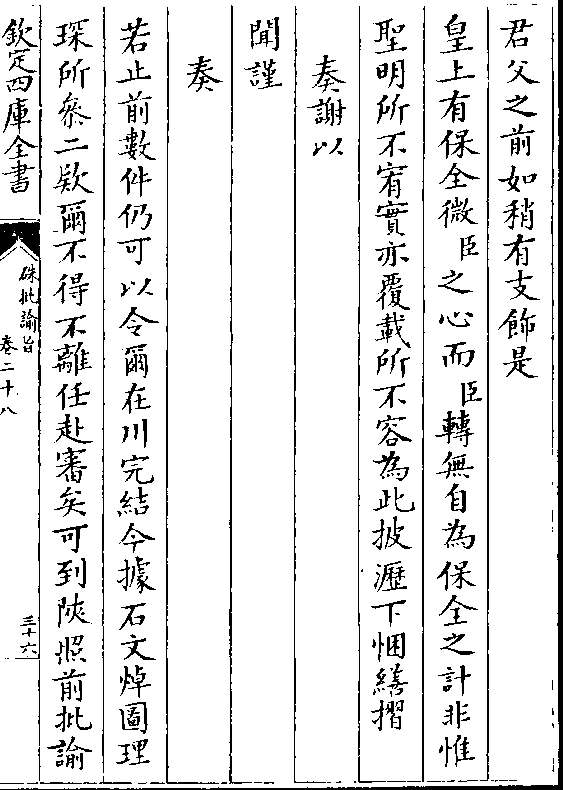 君父之前如稍有支飾是
皇上有保全微臣之心而臣轉無自為保全之計非惟
聖明所不宥實亦覆載所不容為此披瀝下悃繕摺
奏謝以
聞謹
奏
若止前數件仍可以令爾在川完結今據石文焯圖理
琛所叅二欵爾不得不離任赴審矣可到陝照前批諭
欽定四庫全書
硃批諭旨
卷二十八
三十六